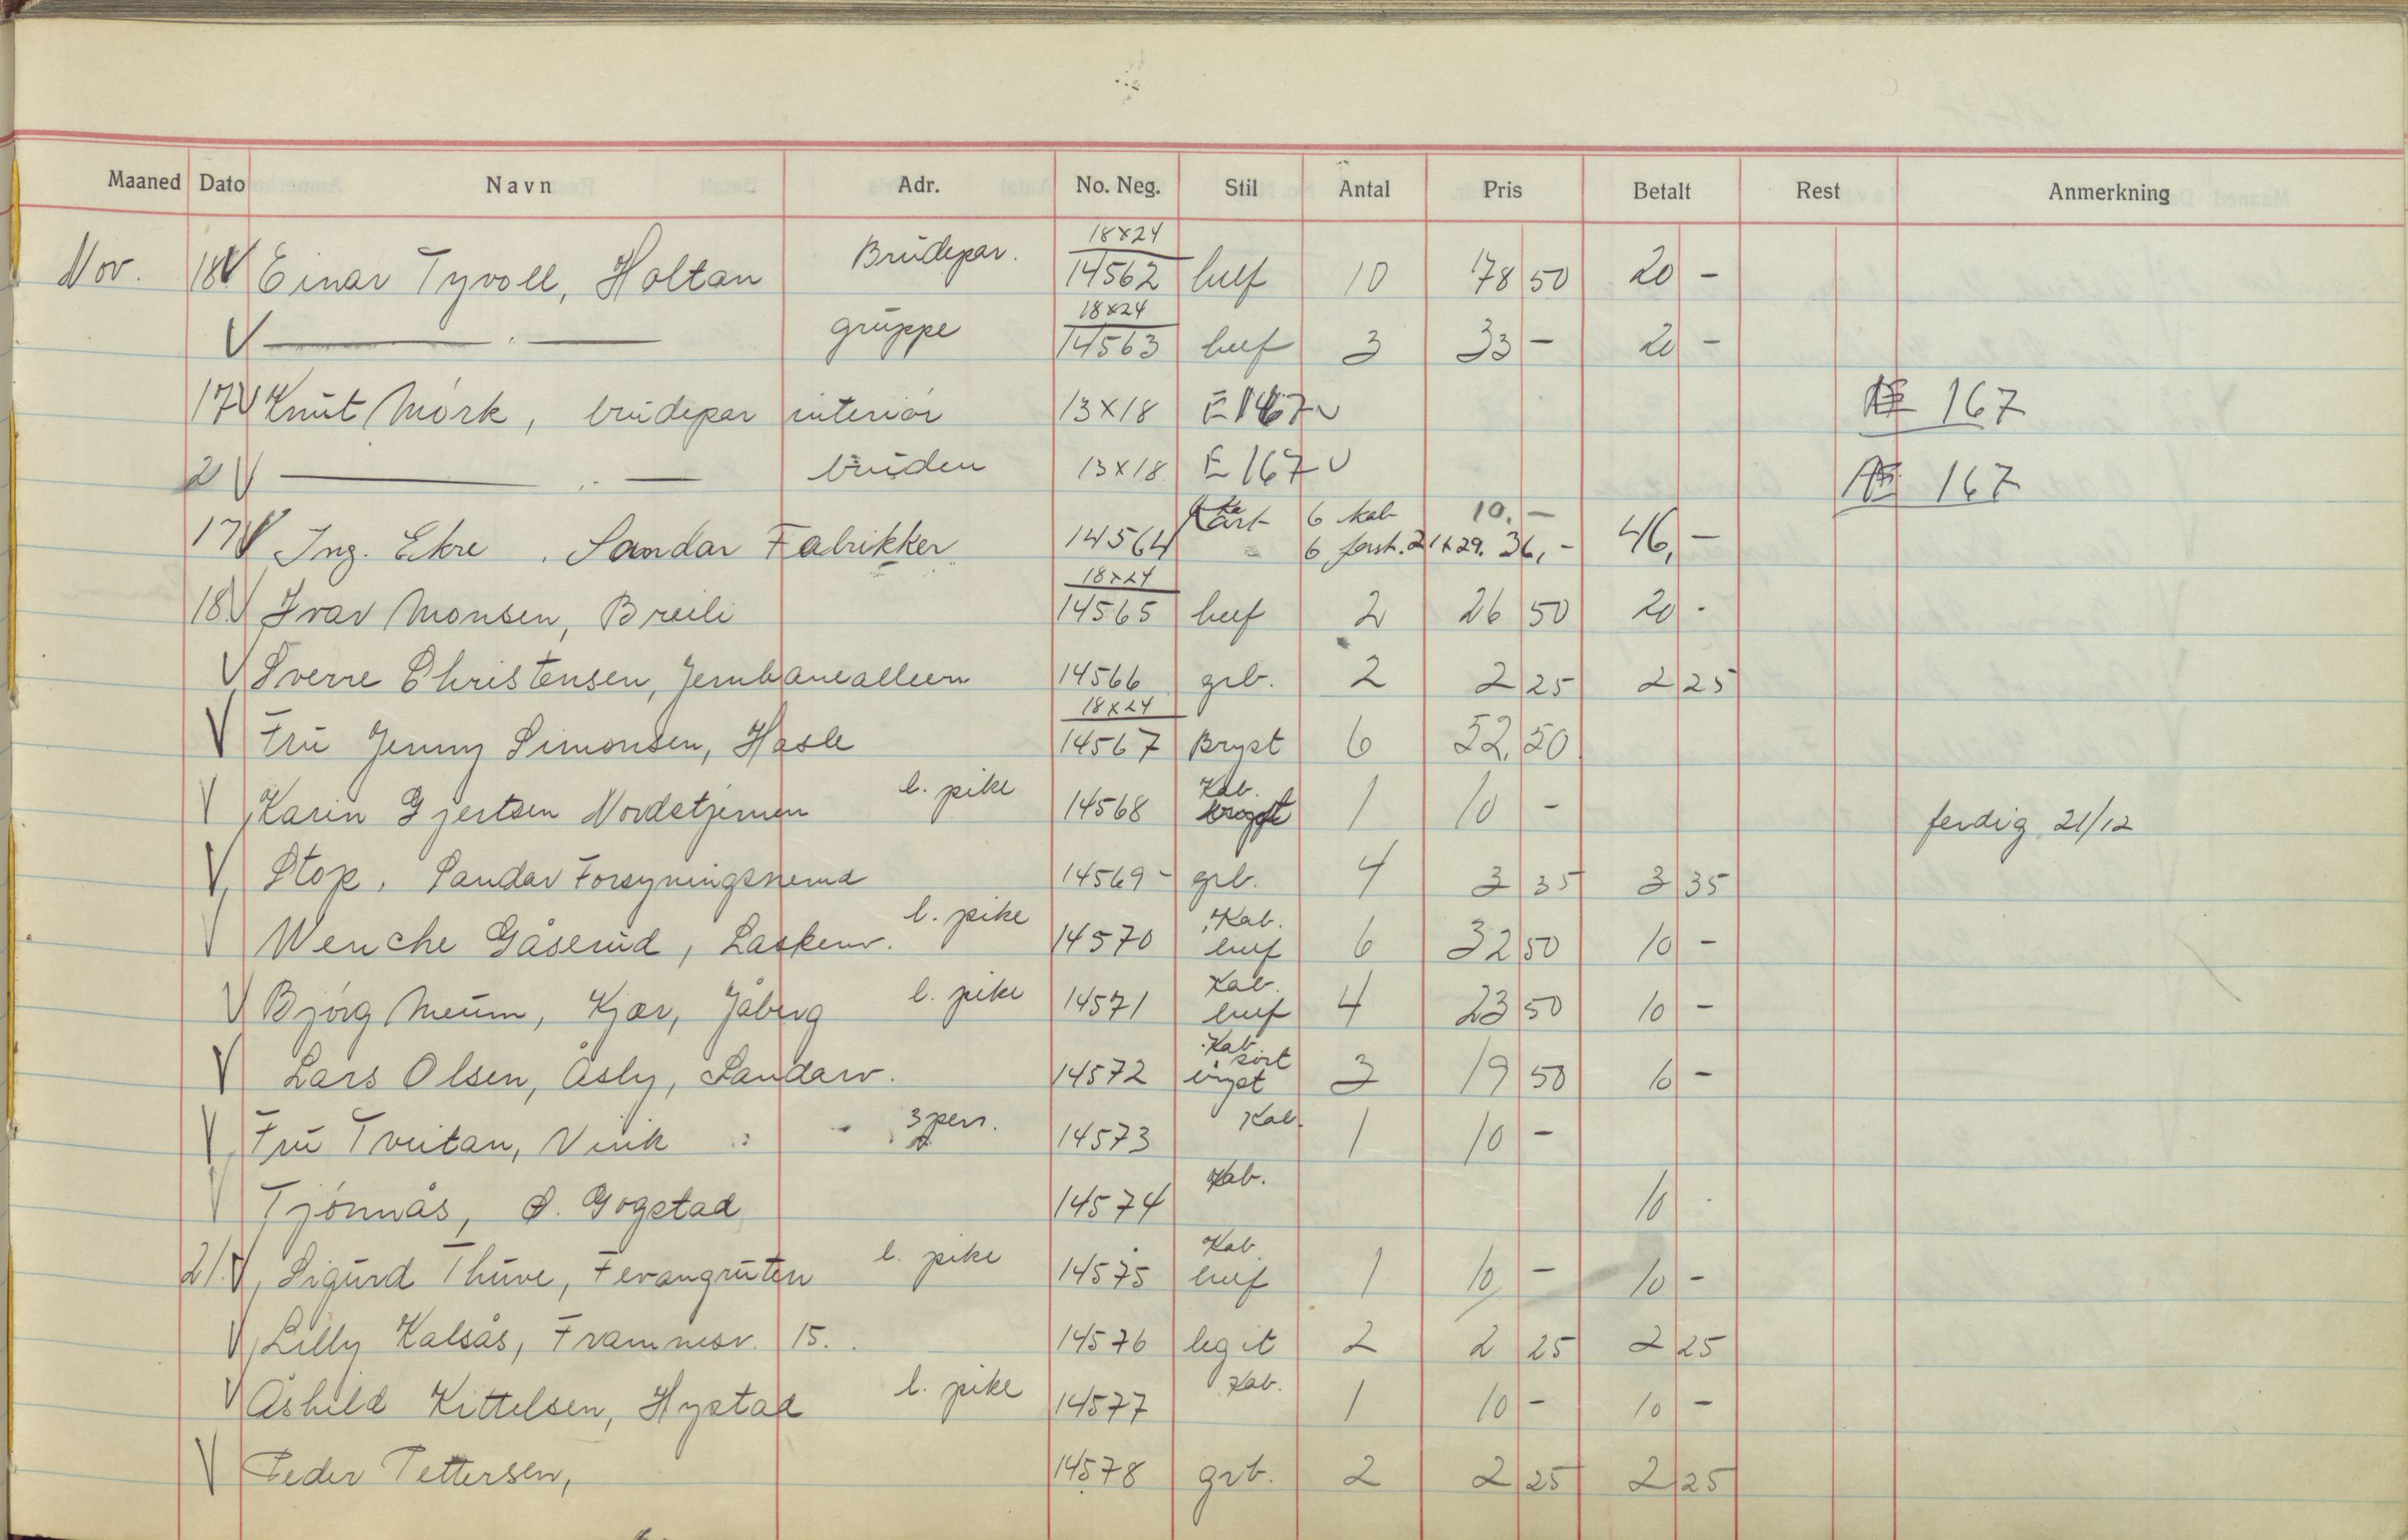 Maaned Dato Navn Adr. No. Neg. Stil Antal Pris Betalt Rest Anmerkning
Nov. 18 V Einar Tyvoll, Holtan Brudepar. 18x24 14562 huf 10 78 50 20 -
V — . — gruppe 18x24 14563 huf 3 33 - 20 -
17 V Knut Mörk, brudepar interiör 13x18 E 167 V 167
2 V — . — bruden 13x18 E 167 V 167
17 V Ing. Ekre . Sandar Fabrikker 14564 6 kab 10.-
6 forst. 21x29. 36,- 46,-
18. V Ivar Monsen, Breili 18x24 14565 huf 2 26 50 20 -
V Sverre Christensen, Jernbanealleen 14566 grb. 2 2 25 2 25
V Fru Jenny Simonsen, Hasle 18x24 14567 Bryst 6 52,50
V Karin Gjertsen Nordstjernen l. pike 14568 Kab. 1 10 - ferdig 21/12
V Stop. Sandar Forsyningsnemd 14569 - grb. 4 3 35 3 35
V Wenche Gåserud, Laskenv. l. pike 14570 Kab. huf 6 32 50 10 -
V Björg Meum, Kjær, Jåberg l. pike 14571 Kab. huf 4 23 50 10 -
V Lars Olsen, Åsly, Sandarv. 14572 Kab. sort bryst 3 19 50 10 -
V Fru Tveitan, Vink 3 pers. 14573 Kab. 1 10 -
V Tjönnås, Ö. Gogstad 14574 Kab. 10 -
21. V Sigurd Thuve, Fevangruten l. pike 14575 Kab huf 1 10 - 10 -
V Lilly Kalsås, Framnesv. 15. 14576 legit 2 2 25 2 25
V Åshild Kittelsen, Hystad l. pike 14577 Kab. 1 10 - 10 -
V Peder Pettersen, 14578 grb. 2 2 25 2 25